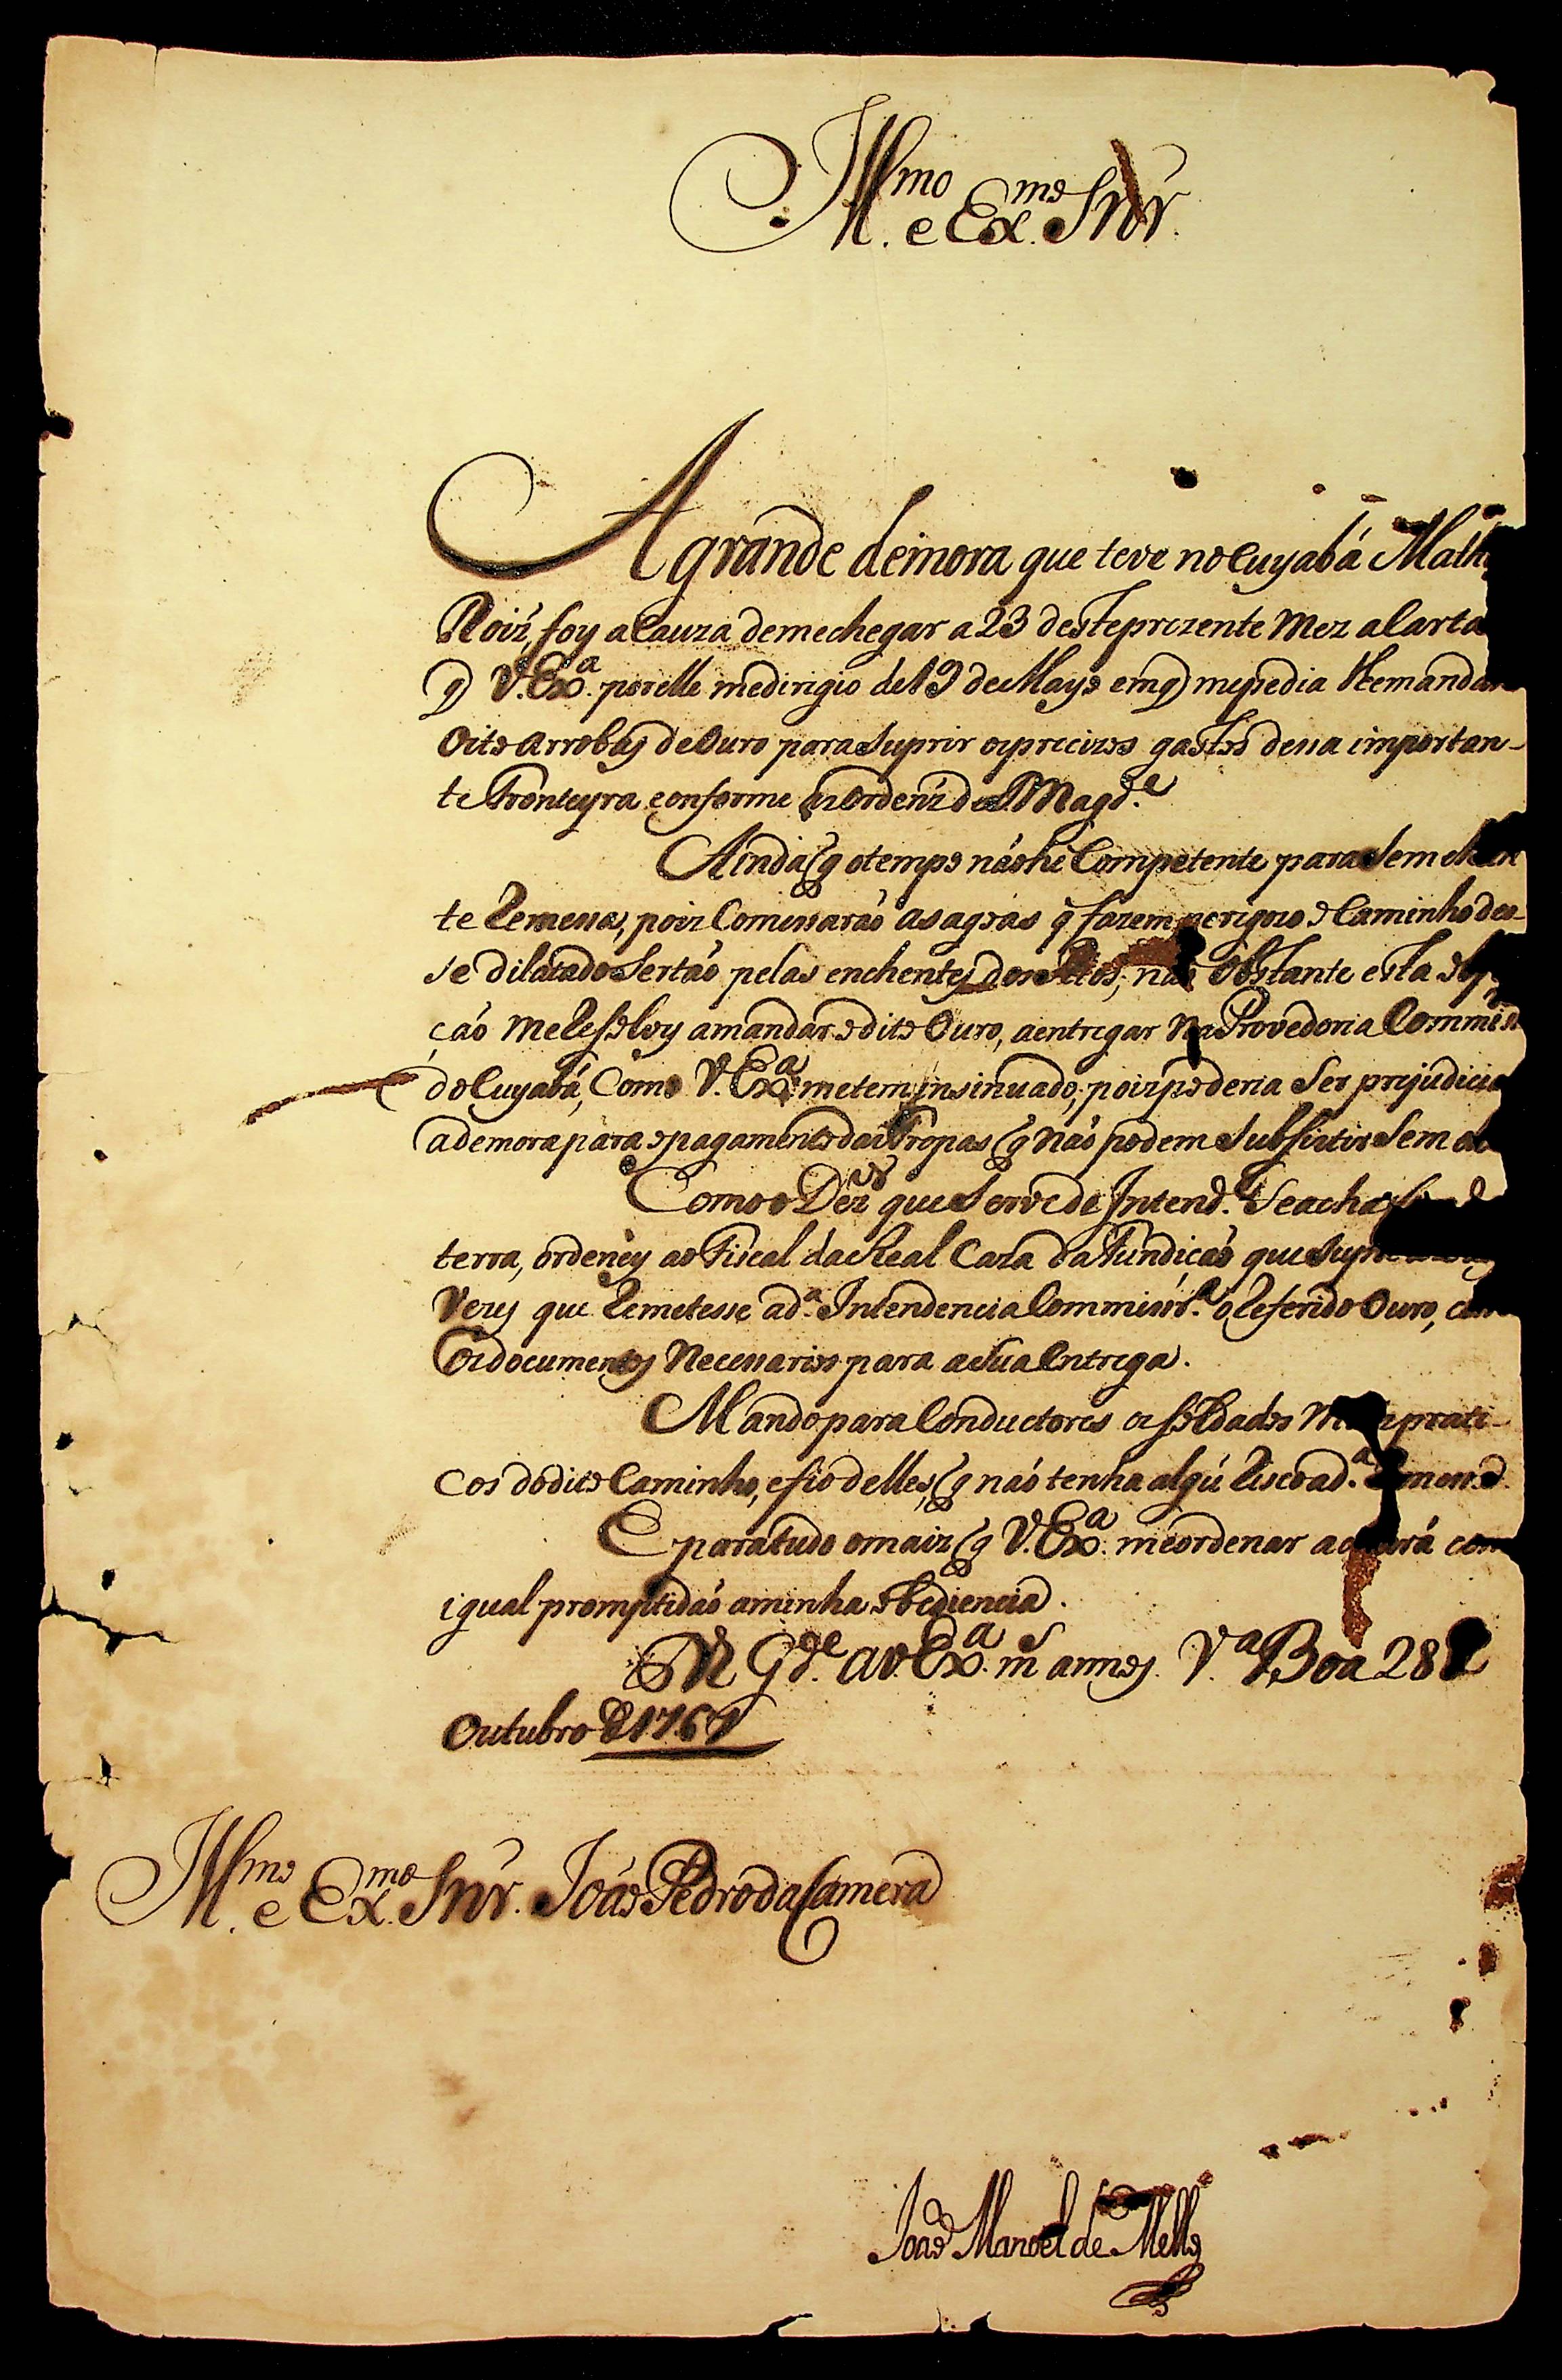 Ill.mo e Ex.mo Snr.
A grande demora que teve no Cuyabá Math
Roiz, foy a Cauza de me chegar a 23 deste prezente Mez a Carta
q V. Ex.a por elle me dirigio de 19 de Mayo em q me pedia Remandar
Oito Arrobas de Ouro para Suprir os precizos gastos dessa importan-
te Fronteyra conforme as Ordenz de S. Mag.de
Ainda q o tempo não hé Competente para Semelhan
te Remessa, pois Comessarão as agoas q fazem perigozo o Caminho des-
se dilatado Sertão pelas enchentes dos Rios; não obstante esta
ção me Resolvy a mandar o dito Ouro, a entregar na Provedoria Commis
do Cuyabá, Como V. Ex.a me tem insinuado, pois poderia Ser prejudicia
a demora para o pagamento das Tropas q não podem Subsistir Sem
Como o Dez.or que Serve de Intend.e Se acha
terra, ordeney ao Fiscal da Real Caza da Fundição que
Vezes que Remetesse a d.a Intendencia Commissr.a o Referido Ouro, com
os documentos Necessarios para a Sua Entrega.
Mando para Conductores os Soldados prati-
cos do dito Caminho, e fio delles, q não tenha algú Risco a d.a
E para tudo o mais q V. Ex.a me ordenar achará com
igual promptidão a minha obediencia.
D.s G.de a V. Ex.a m.s annos. V.a Boa 28 de
Outubro de 1761
Ill.mo e Ex.mo Snr. João Pedro da Camera
João Manoel de Mello